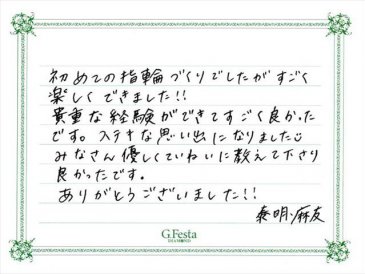 初めての指輪づくりでしたがすごく
楽しくできました!!
貴重な経験ができてすごく良かった
です。ステキな思い出になりました☺
みなさん優しくていねいに教えて下さり
良かったです。
ありがとうございました!!
泰明・麻友
G.Festa
DIAMOND